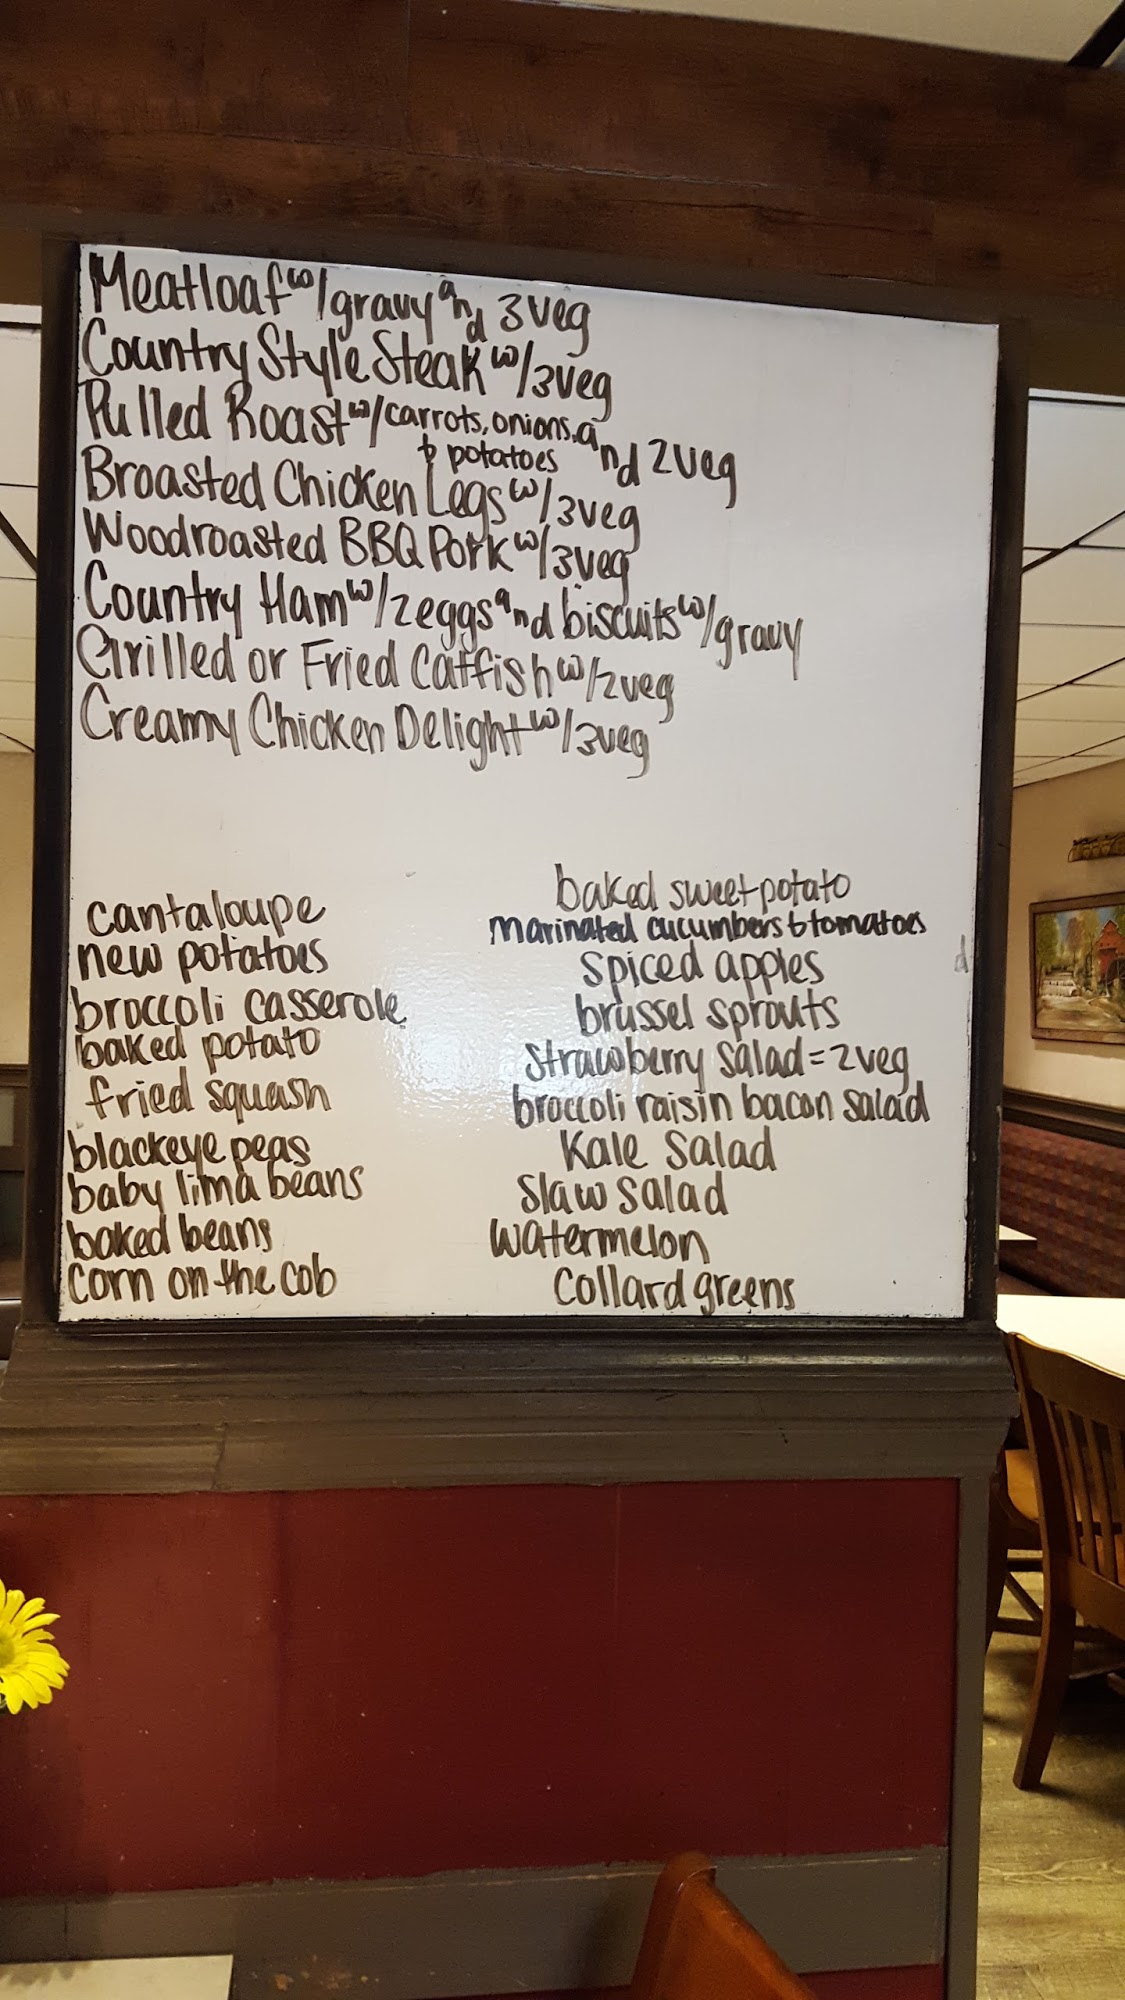 Meatloaf w/gravy and 3 veg
Country Style Steak w/3veg
Pulled Roast w/carrots, onions, and 2 veg
& potatoes
Broasted Chicken Legs w/3veg
Woodroasted BBQ Pork w/3veg
Country Ham w/2 eggs and biscuits w/gravy
Grilled or Fried Catfish w/2veg
Creamy Chicken Delight w/3veg
cantaloupe
new potatoes
broccoli casserole
baked potato
fried squash
blackeye peas
baby lima beans
baked beans
corn on the cob
baked sweet potato
marinated cucumbers & tomatoes
spiced apples
brussel sprouts
strawberry salad = 2 veg
broccoli raisin bacon salad
Kale Salad
Slaw salad
watermelon
collard greens